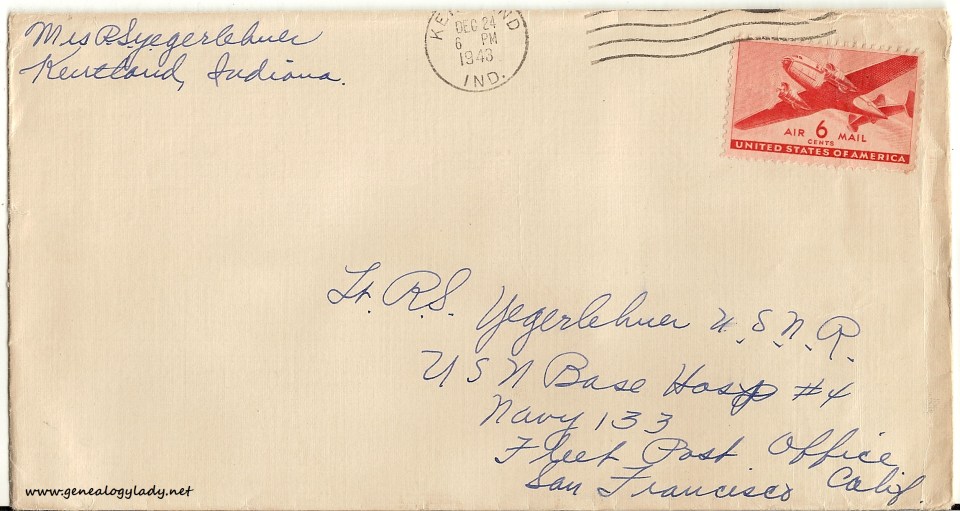 Mrs R.S. Yegerlehner
Kentland, Indiana.
KENTLAND
DEC 24
6 PM
1943
IND.
AIR 6 MAIL
CENTS
UNITED STATES OF AMERICA
Lt. R.S. Yegerlehner U.S.N.R.
USN Base Hosp #4
Navy 133
Fleet Post Office
San Francisco Calif.
www.genealogylady.net